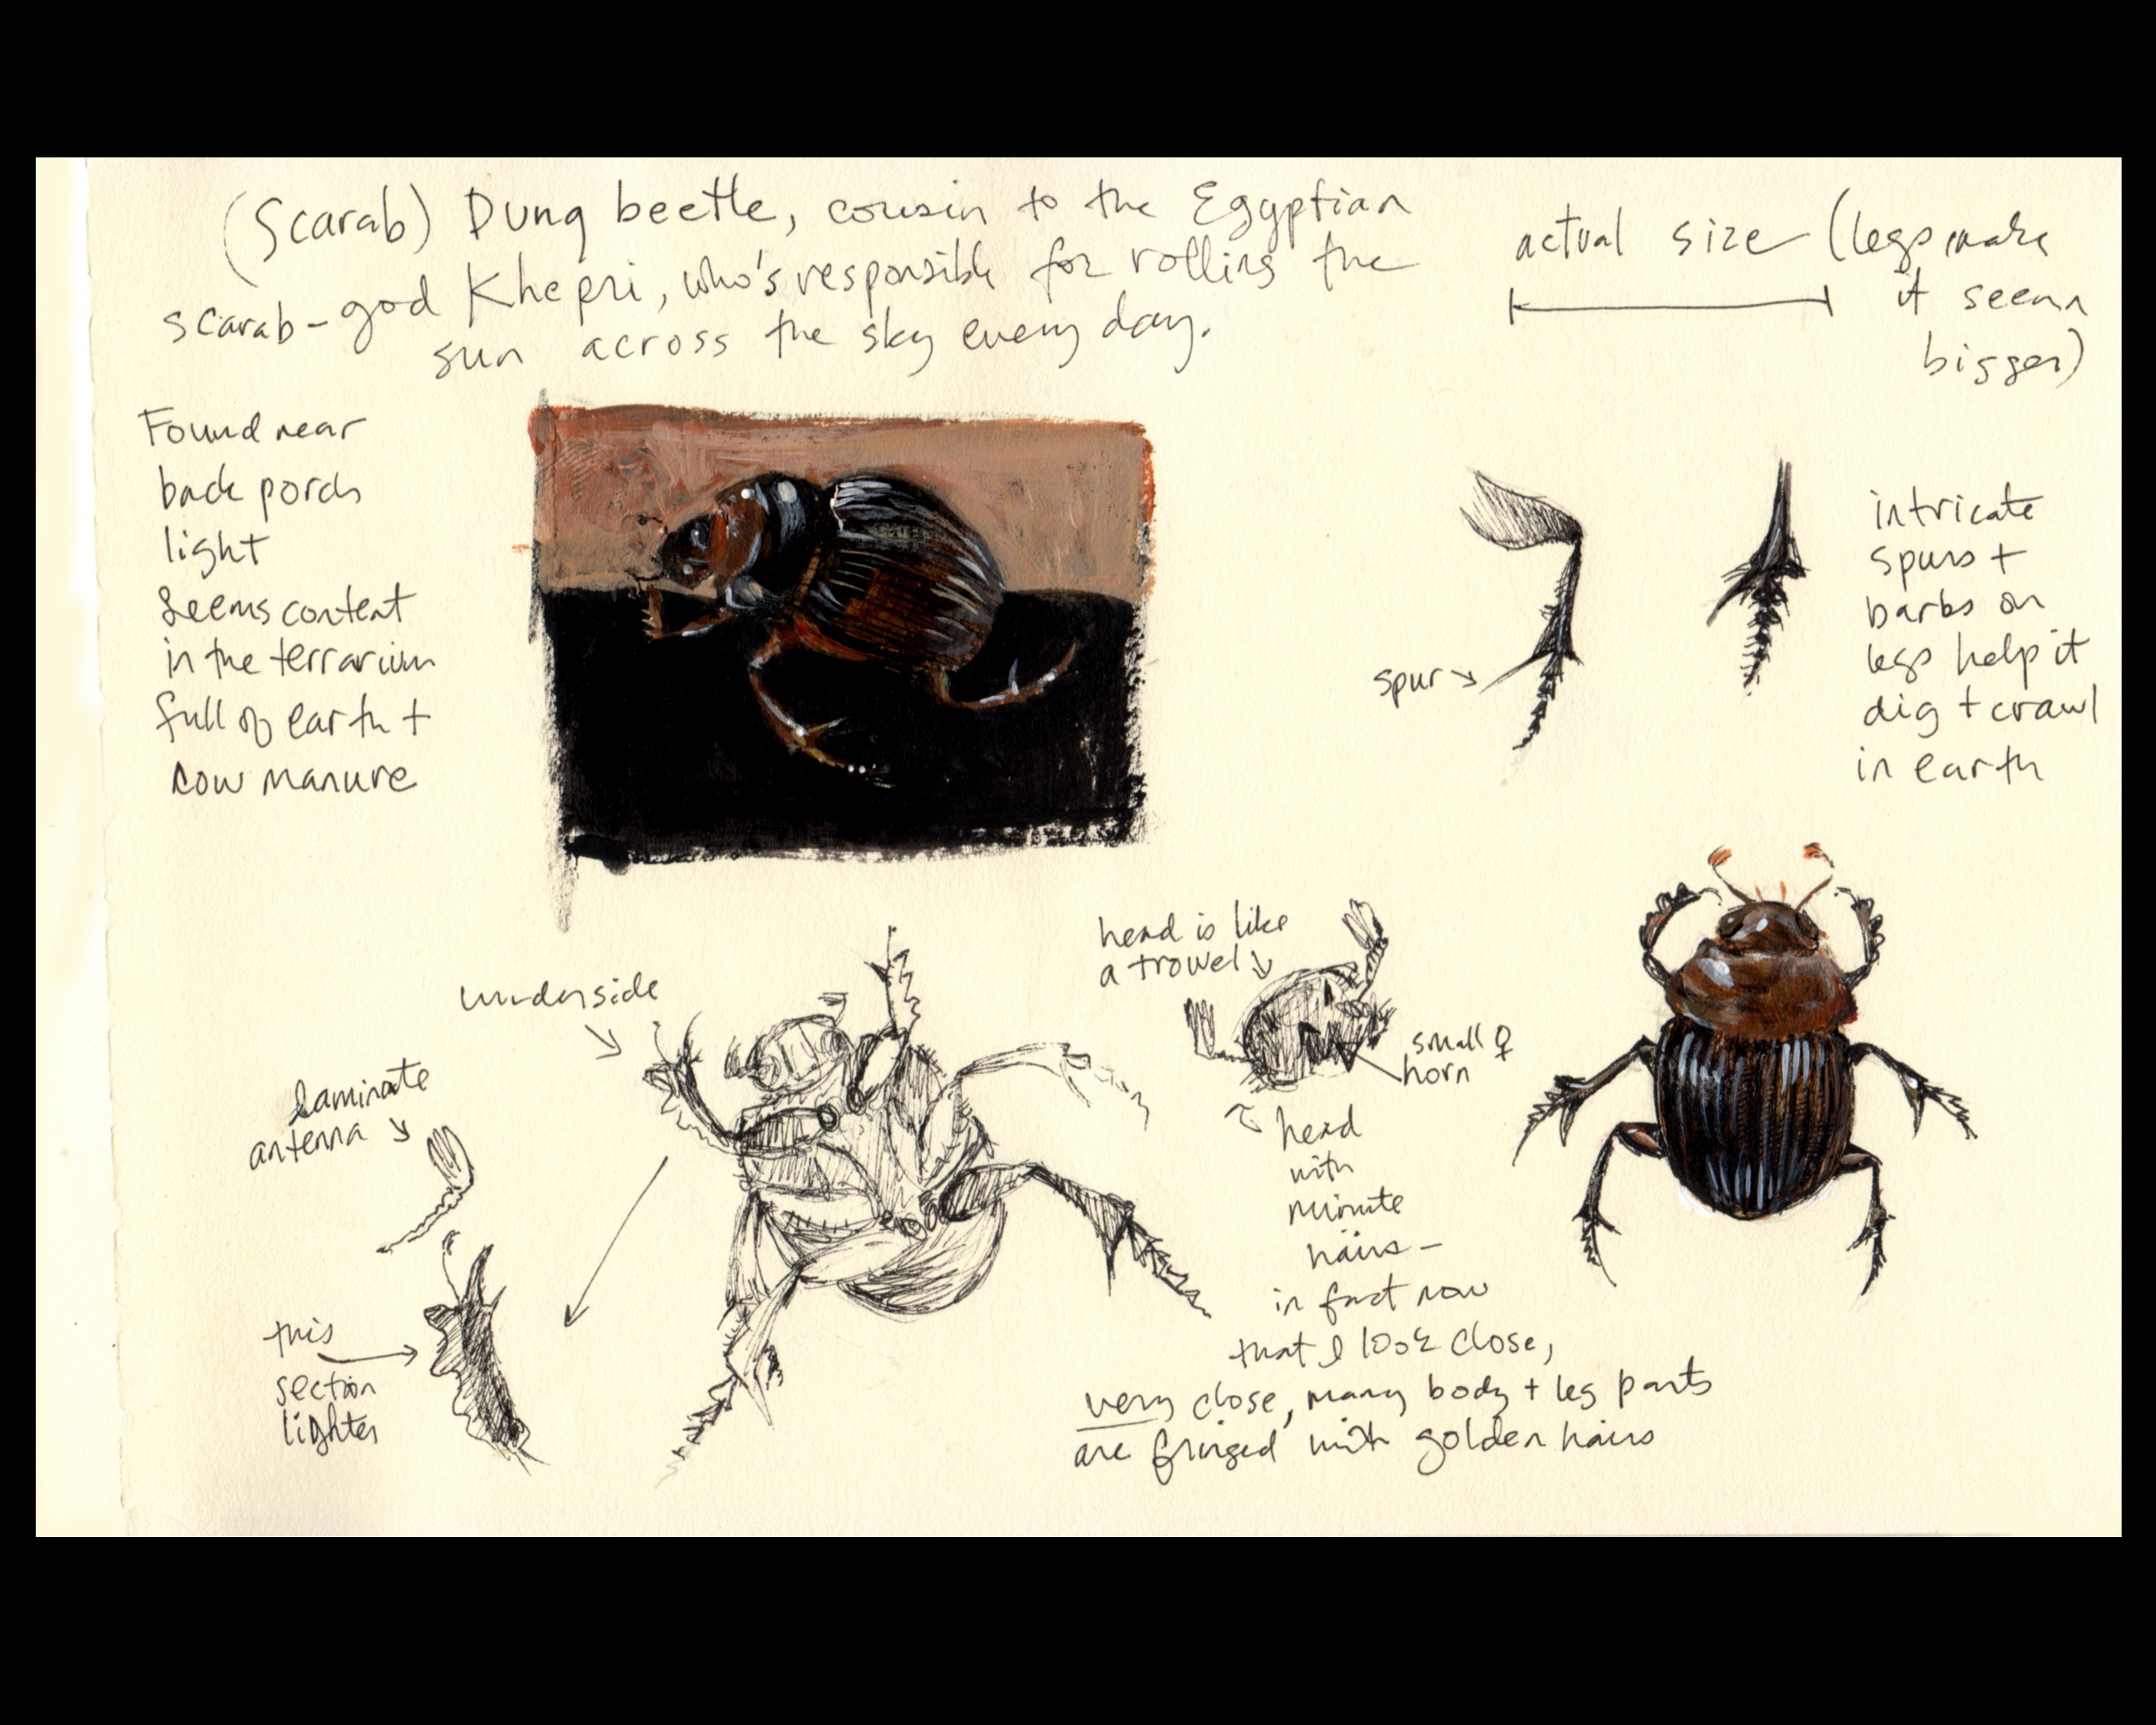 (Scarab) Dung beetle, cousin to the Egyptian
scarab-god Khepri, who's responsible for rolling the
sun across the sky every day.
actual size (legs make
it seem
bigger)
Found near
back porch
light
Seems content
in the terrarium
full of earth +
cow manure
spur
intricate
spurs +
barbs on
legs help it
dig + crawl
in earth
underside
head is like
a trowel
small ♀
horn
laminate
antenna
head
with
minute
hairs -
in fact now
that I look close,
very close, many body + leg parts
are fringed with golden hairs
this
section
lighter